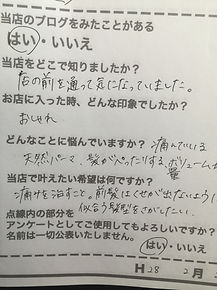 当店のブログをみたことがある
はい・いいえ
当店をどこで知りましたか？
店の前を通って気になっていました。
お店に入った時、どんな印象でしたか？
おしゃれ
どんなことに悩んでいますか？ 痛んでいる
天然パーマ、髪がぺったりする、ボリュームが
当店で叶えたい希望は何ですか？
痛みを治すこと。前髪はくせが出ないように
似合う髪型をさがしたい。
点線内の部分を
アンケートとしてご使用してもよろしいですか？
名前は一切公表いたしません。
はい・いいえ
H 28 2月